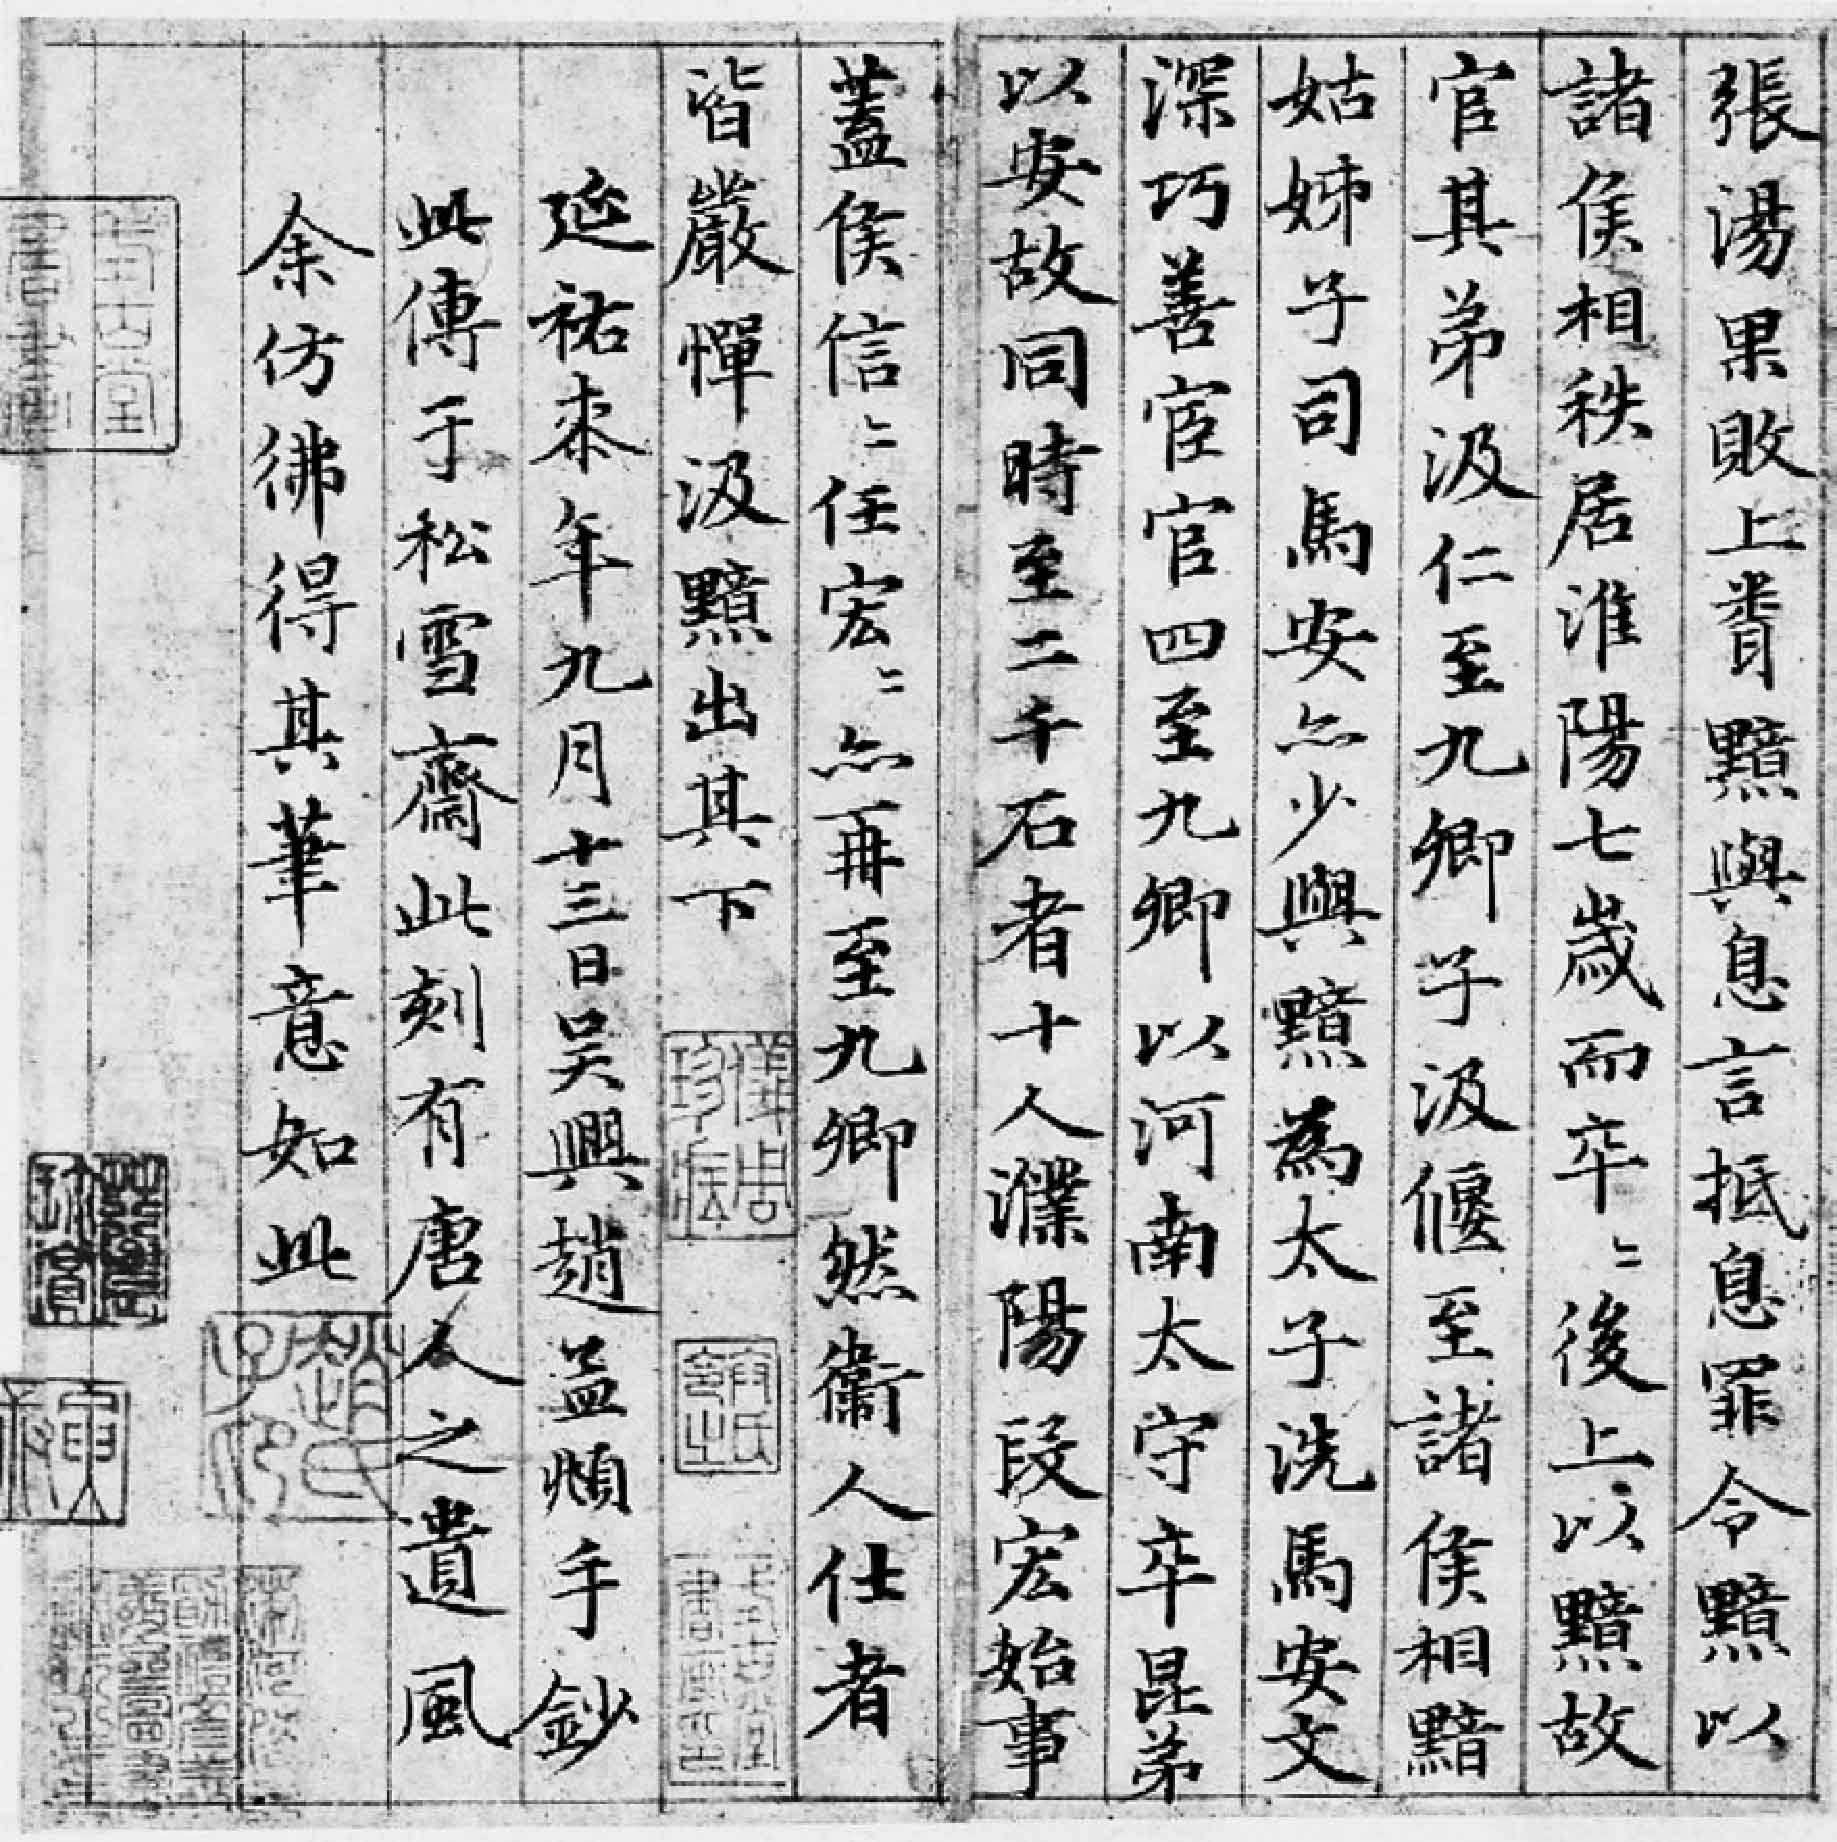 張湯果敗上聞黯與息言抵息罪令黯以
諸侯相秩居淮陽七歲而卒〻後上以黯故
官其弟汲仁至九卿子汲偃至諸侯相黯
姑姊子司馬安亦少與黯為太子洗馬安文
深巧善宦官四至九卿以河南太守卒昆弟
以安故同時至二千石者十人濮陽段宏始事
蓋侯信〻任宏〻亦再至九卿然衛人仕者
皆嚴憚汲黯出其下
延祐柒年九月十三日吳興趙孟頫手鈔
此傳于松雪齋此刻有唐人之遺風
余仿彿得其筆意如此
趙氏子昂